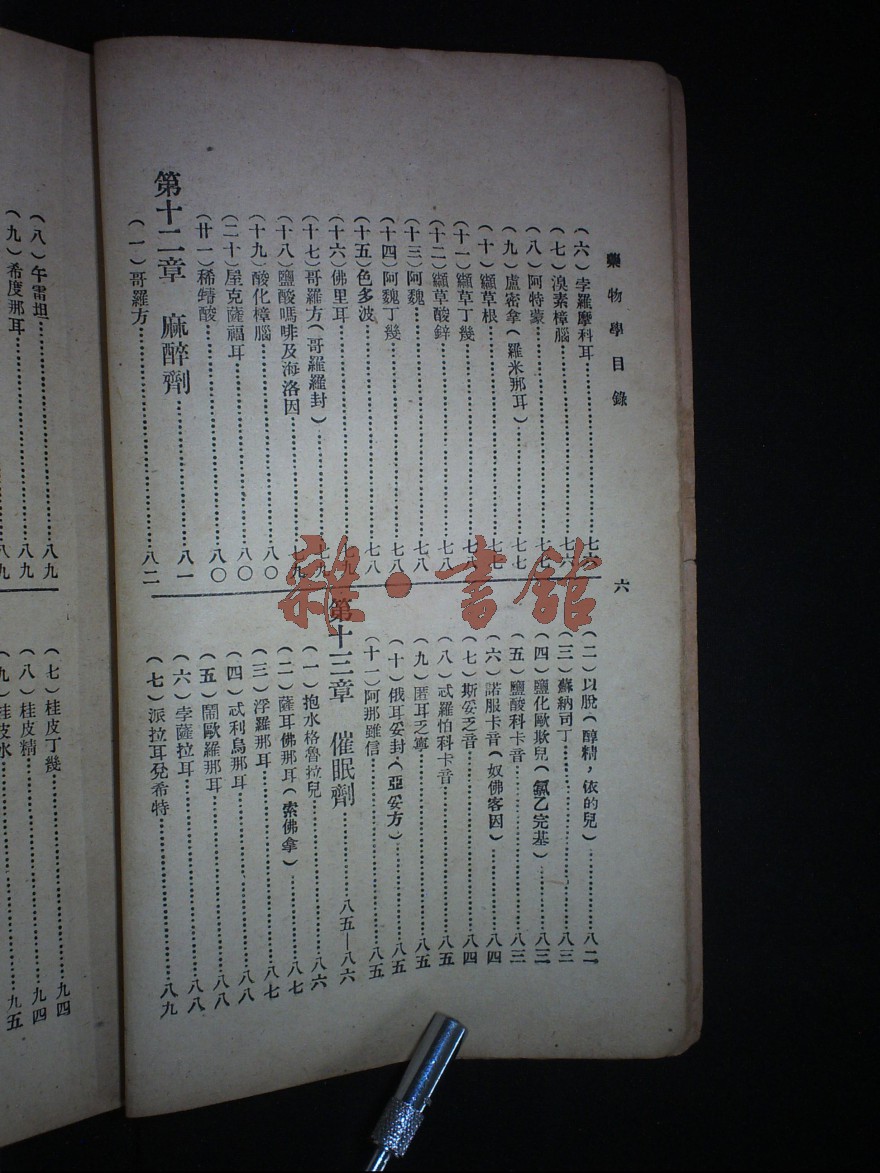 藥物學目錄
六
(六)孛羅摩科耳……七六
(七)溴素樟腦……七六
(八)阿特蒙……七七
(九)盧密拿(羅米那耳)……七七
(十)纈草根……七七
(十一)纈草丁幾……七八
(十二)纈草酸鋅……七八
(十三)阿魏……七八
(十四)阿魏丁幾……七八
(十五)色多波……七八
(十六)佛里耳……七九
(十七)哥羅方(哥羅羅封)……七九
(十八)鹽酸嗎啡及海洛因……七九
(十九)酸化樟腦……八〇
(二十)屋克薩福耳……八〇
(廿一)稀䗻酸……八〇
第十二章 麻醉劑……八一
(一)哥羅方……八二
(二)以脫(醇精,依的兒)……八二
(三)蘇納司丁……八三
(四)鹽化歐歟兒(氯乙完基)……八三
(五)鹽酸科卡音……八三
(六)諾服卡音(奴佛客因)……八四
(七)斯妥乏音……八四
(八)忒羅怕科卡音……八五
(九)匿耳乏寧……八五
(十)俄耳妥封(亞妥方)……八五
(十一)阿那雖信……八五
第十三章 催眠劑……八五—八六
(一)抱水格魯拉兒……八六
(二)薩耳佛那耳(索佛拿)……八七
(三)浮羅那耳……八七
(四)忒利鳥那耳……八八
(五)鬧歐羅那耳……八八
(六)孛薩拉耳……八八
(七)派拉耳兌希特……八九
(八)午雷坦……八九
(九)希度那耳……八九
八九
(七)桂皮丁幾……九四
(八)桂皮精……九四
(九)桂皮水……九五
雜·書館